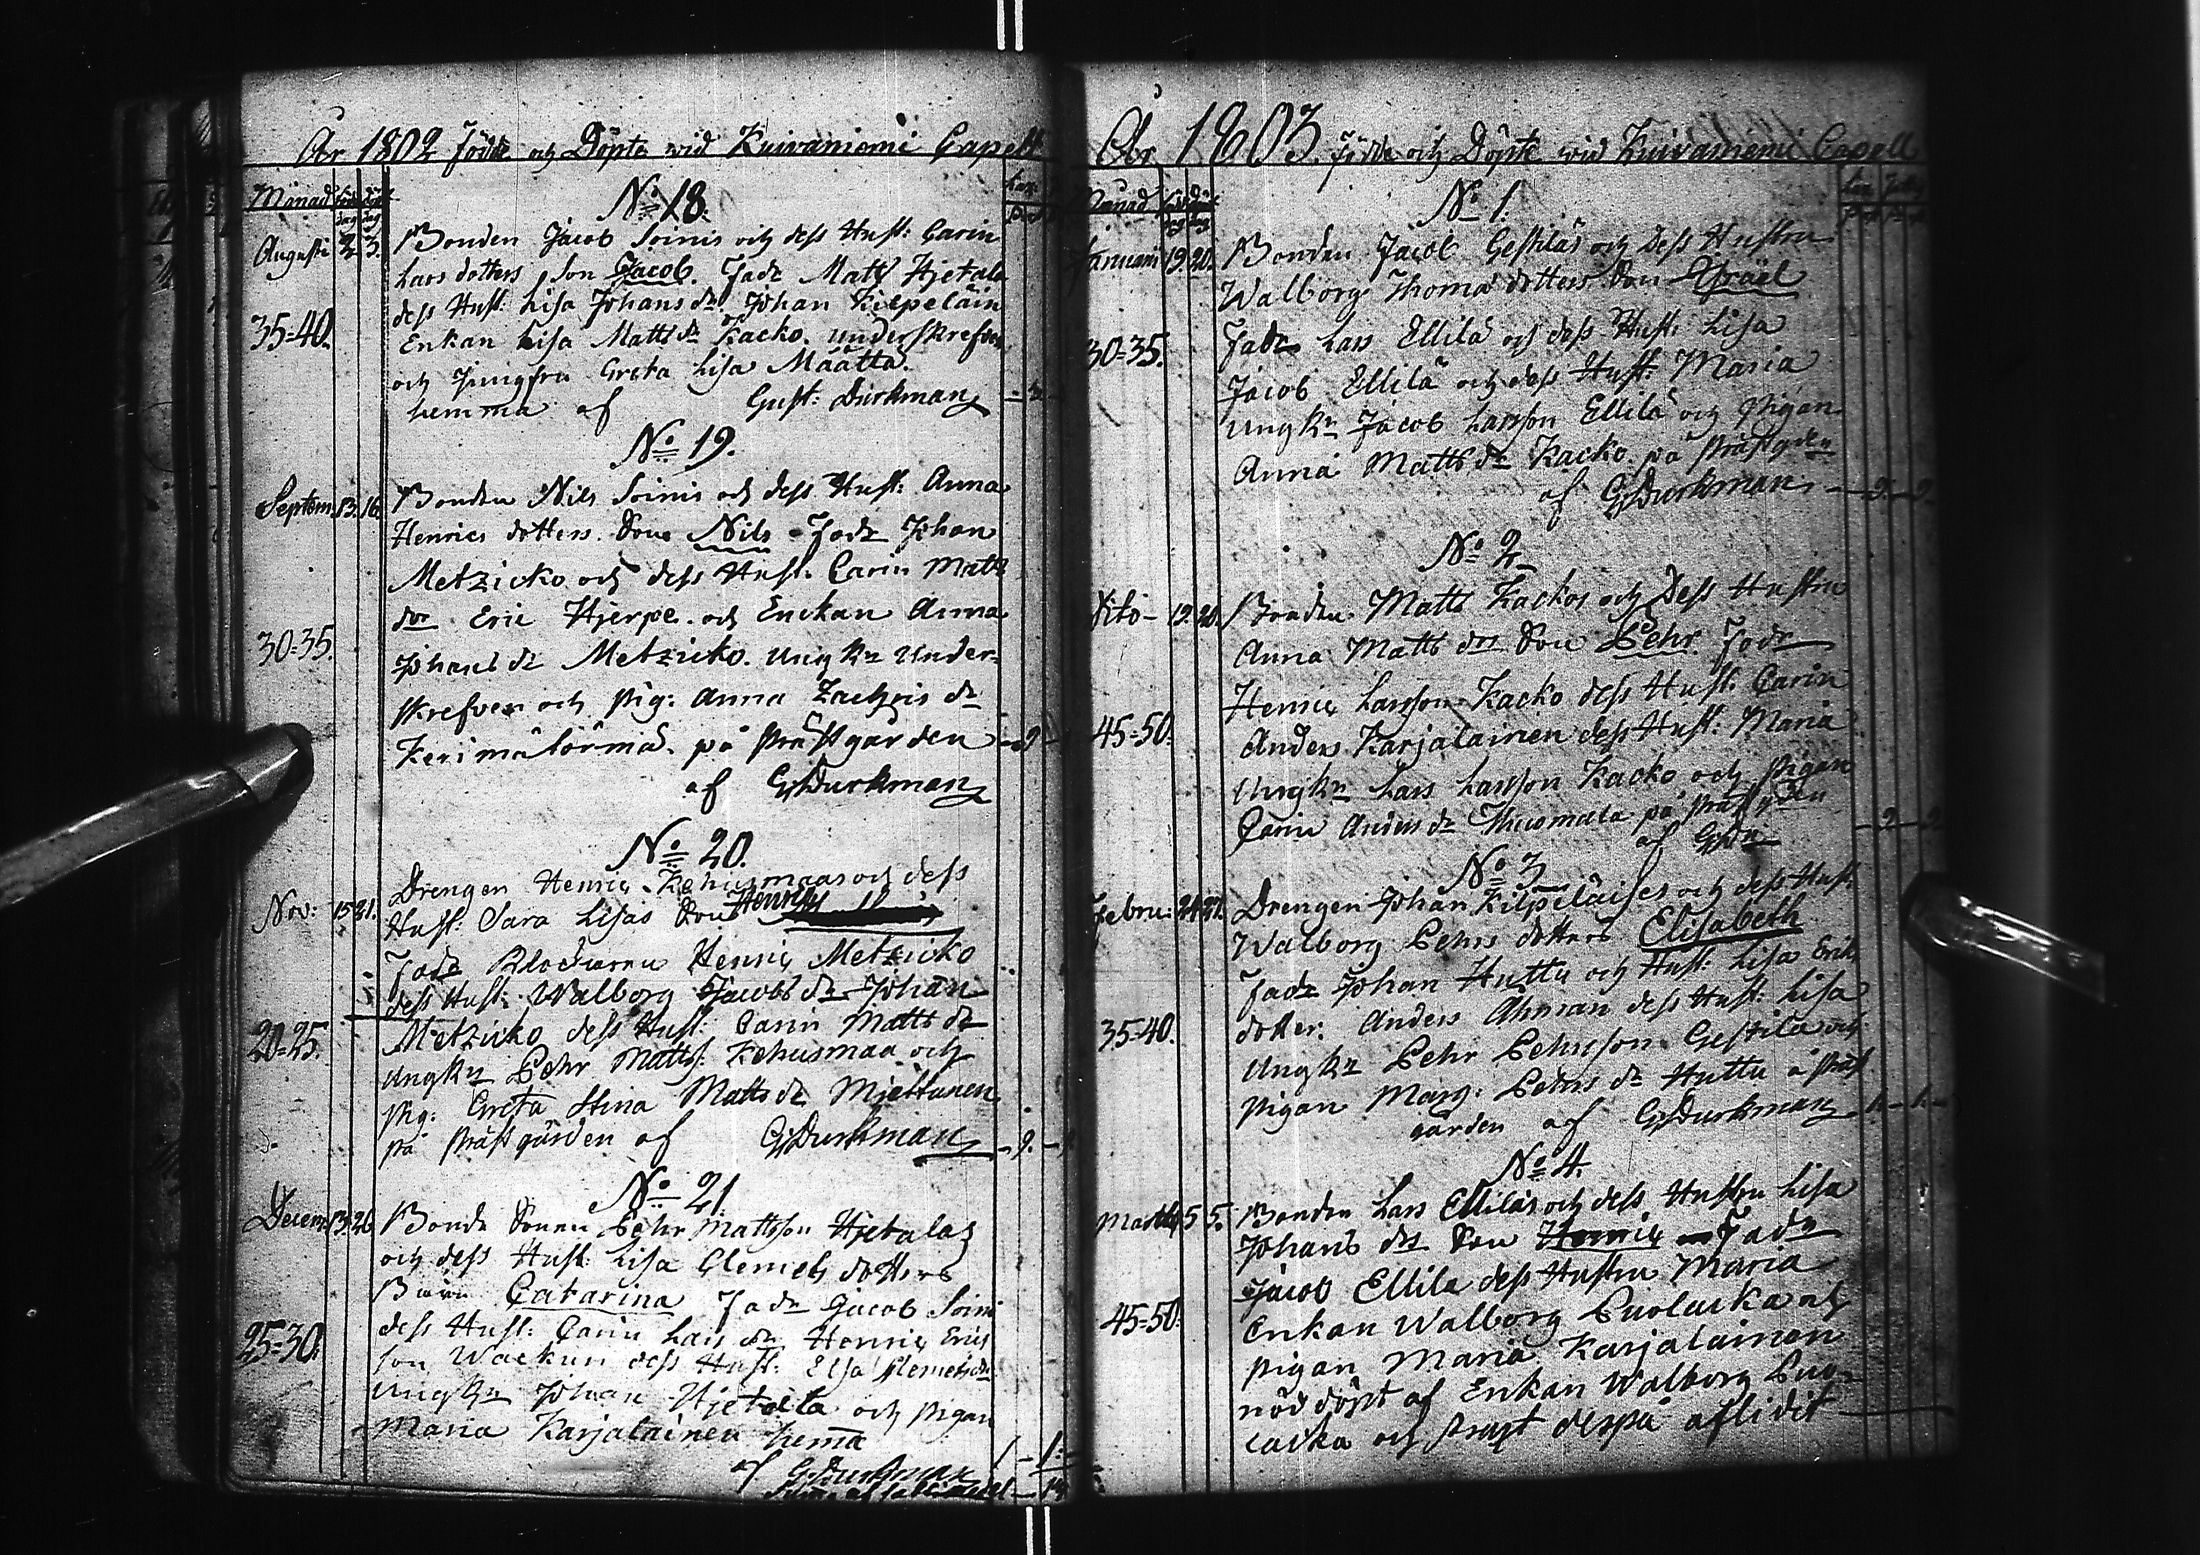 År 1802 födde och Döpte wid Kuivaniemi Capell
Månad
No 18.
Augusti 2 3. Bonden Jacob Soinis och dess Hust: Carin
Lars dotters Son Jacob. Fadr Matts Hjetala
dess Hust: Lisa Johans dr. Johan Kilpeläin
35=40. Enkan Lisa Matts dr Kacko. underskrefven
och Jungfru Greta Lisa Määtta.
hemma af Gust: Durkman
No 19.
Septem: 13. 16. Bonden Nils Soinis och dess Hust: Anna
Henrics dotters Son Nils Fadr Johan
Metzicko och dess Hust: Carin Matts
dr Eric Hjerpe och Enckan Anna
30=35. Johans dr Metzicko. Ungkn Under=
skrefven och Pig: Anna Zachris dr
på Prästgården
af G:Durkman
No 20.
Nov: 15 21. Drengen Henric Kehusmaas och dess
Hust: Sara Lisas Son Henric
Fadr Henric Metzicko
dess Hust: Walborg Jacobs dr Johan
20=25. Metzicko dess Hust: Carin Matts dr
Ungkn Pehr Matts: Kehusmaa och
Pig: Greta Stina Matts dr Miettunen
på Prästgården af G:Durkman
No 21.
Decem: 13. 26 Bonde Sonen Pehr Mattsson Hjetalas
och dess Hust: Lisa Clemets dotters
Barn Catarina Fadr Jacob Soini
dess Hust: Carin Lars dr Henric Erics
25=30. son Wackuri dess Hust: Elsa Clemets dr
Ungkn Johan Hjetala och Pigan
Maria Karjalainen hema
af G:Durkman
År 1803. födde och Döpte wid Kuivaniemi Capell
Månad
No 1.
Januarii 19. 20. Bonden Jacob Gestiläs och Dess Hustru
Walborg Thomæ dotters Son Israel
30=35. Fadr Lars Ellilä och dess Hust: Lisa
Jacob Ellilä och dess Hust: Maria
Ungkn Jacob Larsson Ellilä och Pigan
Anna Matts dr Kacko på Prästgden
af G:Durkman
No 2
Dito 19. 20. Bonden Matts Kackos och Dess Hustru
Anna Matts drs Son Pehr. Fadr
Henric Larsson Kacko dess Hust: Carin
45=50. Anders Karjalainen dess Hust: Maria
Ungkn Lars Larsson Kacko och Pigan
Carin Anders dr på Prästgden
af
No 3
Febru: 24 27. Drengen Johan Kilpeläises och dess Hust:
Walborg Pehrs dotters Elisabeth
Fadr Johan Huttu och Hust: Lisa Erics
35=40. dotter. Anders Ahman dess Hust: Lisa
Ungkn Pehr Pehrsson Gestilä och
Pigan Marg: Pehrs dr Huttu å Präst
gården af G:Durkman
No 4.
Martii 5 5. Bonden Lars Ellilas och dess Hustru Lisa
Johans drs Son Henric Fadr
Jacob Ellila dess Hustru Maria
45=50. Enkan Walborg Puolacka och
Pigan Maria Karjalainen
nöddöpt af Enkan Walborg Puo=
lacka och straxt derpå aflidit